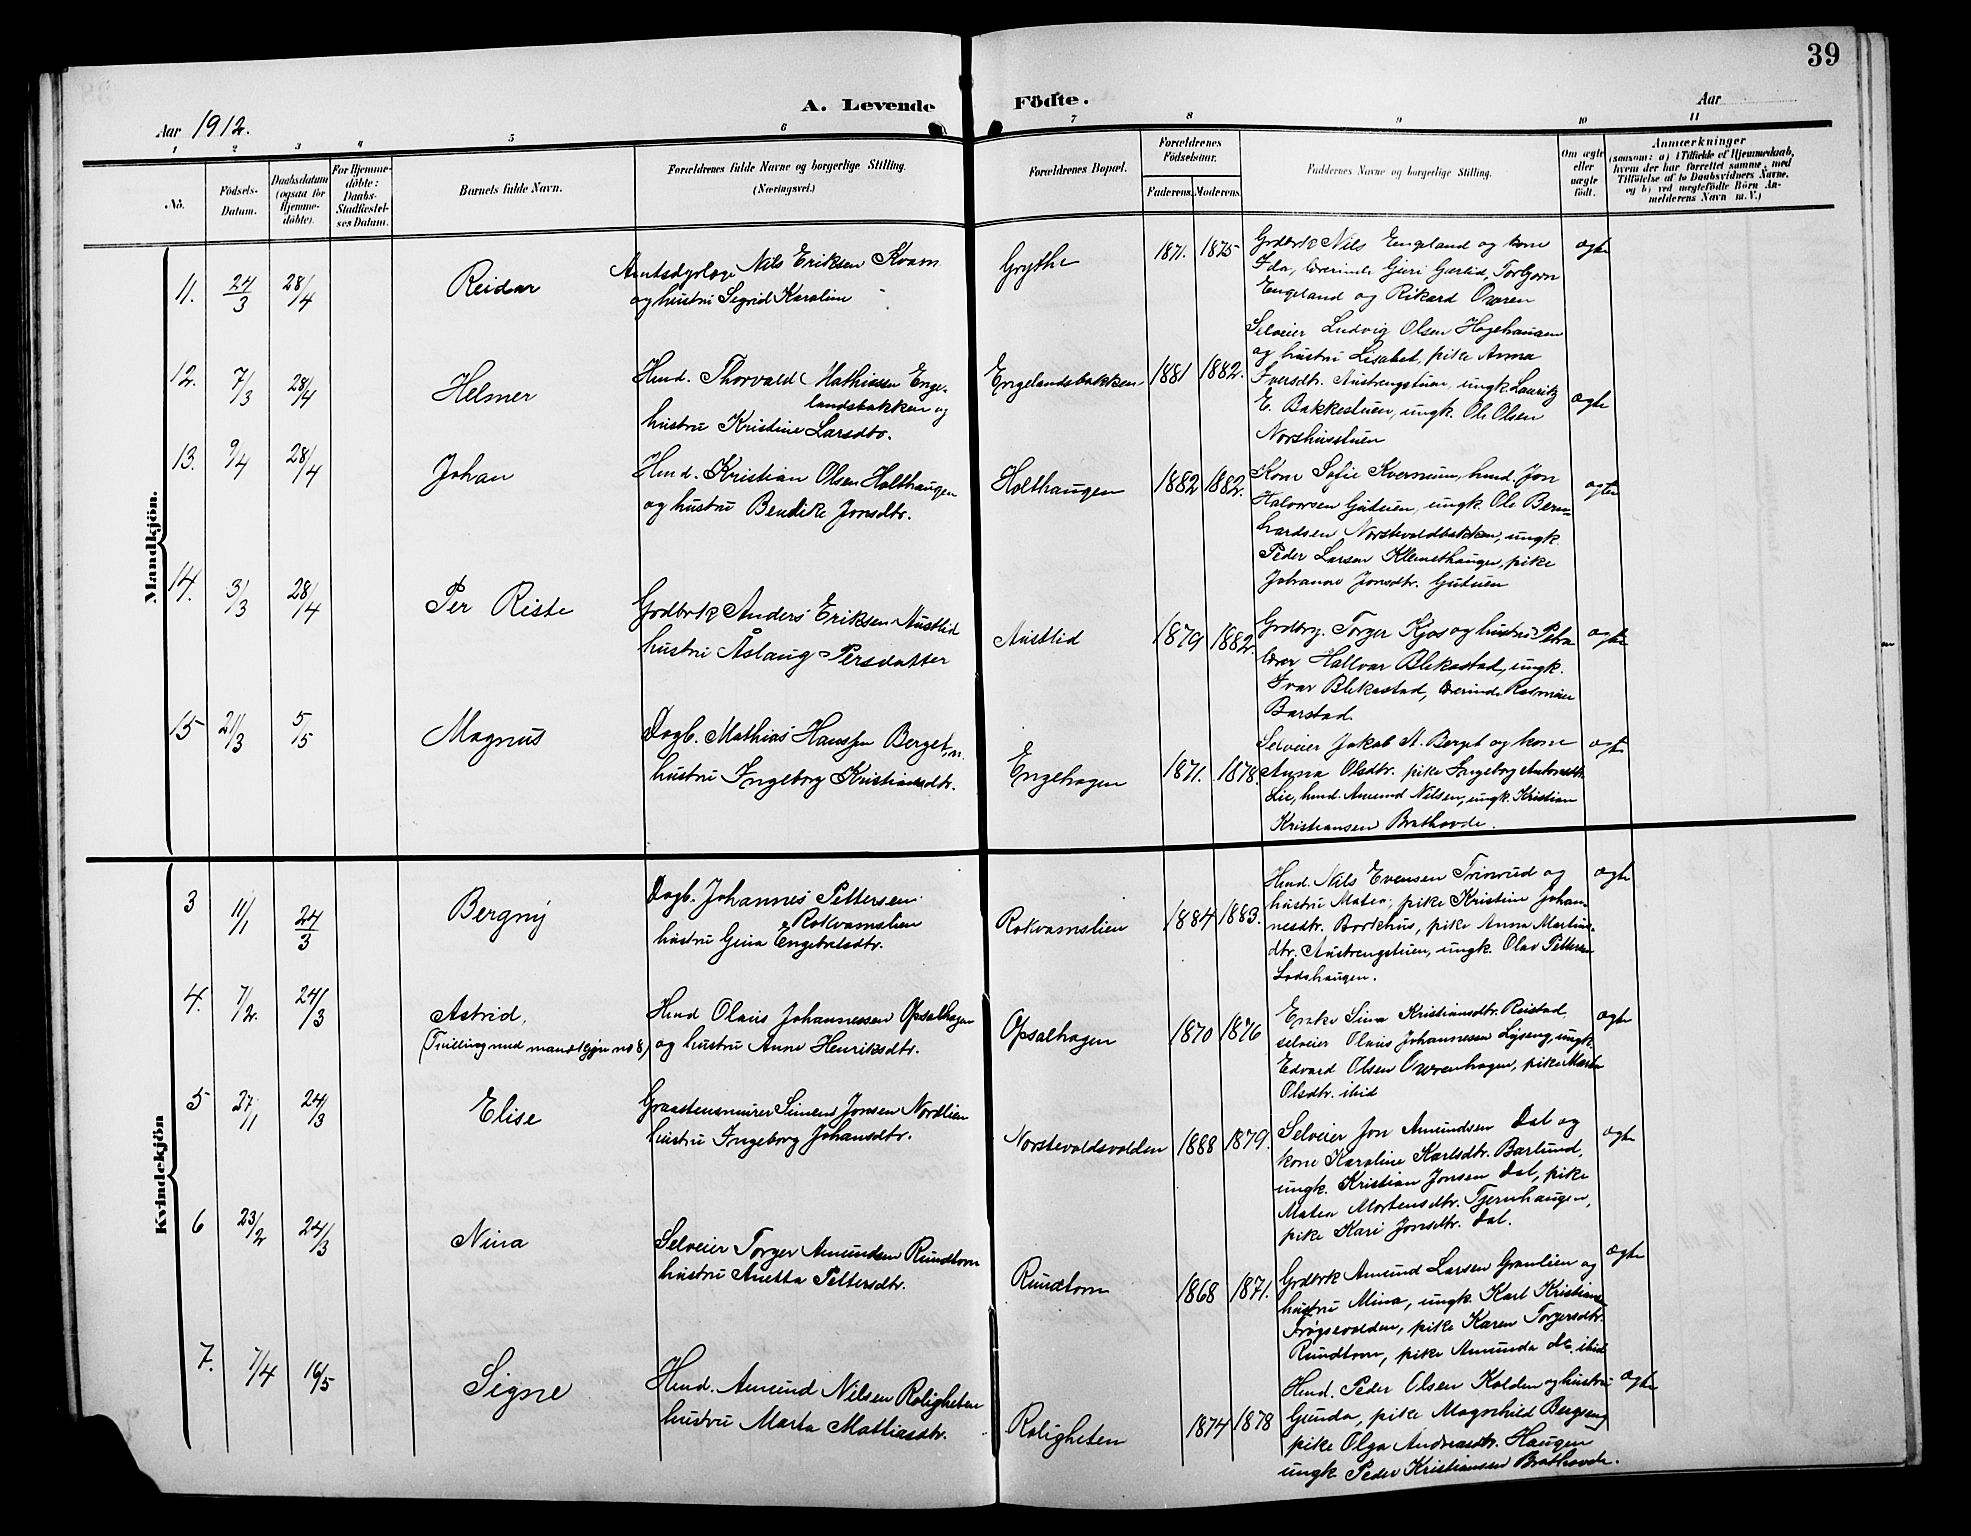 39
A. Levende Födte.
Aar 1912.
Aar
1 2 3 4 5 6 7 8 9 10 11
No.
Födsels-
Datum.
Daabsdatum
(ogsaa for
Hjemme-
döbte).
For Hjemme-
döbte:
Daabs-
Stadfæstel-
ses Datum.
Barnets fulde Navn.
Forældrenes fulde Navne og borgerlige Stilling.
(Næringsvei.)
Forældrenes Bopæl.
Forældrenes
Födselsaar.
Faderens. Moderens.
Faddernes Navne og borgerlige Stilling.
Om ægte
eller
uægte
født.
Anmærkninger
(saasom: a) i Tilfælde af Hjemmedaab,
hvem der har forrettet samme, med
Tilföielse af to Daabsvidners Navne,
og b) ved uægtefödte Börn An-
melderens Navn m. V.)
Mandkjön.
11. 24/3 28/4 Reidar
Amtsdyrlæge Nils Eriksen Kvam
og hustru Sigrid Karoline
Grythe 1871. 1875
Grdbrk Nils Engeland og kone
Ida, lærerinde Guri Gærlid, Torbjørn
Engeland og Rikard Overen
ægte
12. 7/3 28/4 Helmer
Hmd. Thorvald Mathiassen Enge-
landsbakken og
hustru Kristine Larsdtr.
Engelandsbakken 1881 1882.
Selveier Ludvig Olsen Hagehaugen
og hustru Lisabet, pike Anna
Iversdtr. Austrengstuen, ungk. Lauritz
E. Bakkestuen, ungk. Ole Olsen
Norshusstuen
ægte
13. 9/4 28/4 Johan
Hmd. Kristian Olsen Holthaugen
og hustru Bendike Jonsdtr.
Holthaugen 1882 1882.
Kone Sofie Kvernum, hmd. Jon
Halvorsen Gutuen, ungk. Ole Bern-
hardsen Norstevoldbakken, ungk.
Peder Larsen Klemethaugen, pike
Johanne Jonsdtr. Gutuen
ægte
14. 3/3 28/4 Per Riste
Grdbrk Anders Eriksen Austlid
hustru Åslaug Persdatter
Austlid 1879 1882.
Grdbrg. Torger Kjos og hustru Petra
lærer Hallvar Blekastad, ungk.
Ivar Blekastad, lærerinde
Barstad
ægte
15 21/3 5/5 Magnus
Dagb. Mathias Hanssen Berget, og
hustru Ingeborg Kristiansdtr.
Engehagen 1871. 1878.
Selveier Jakob A. Berget og kone
Anna Olsdtr. pike Ingeborg Antonsdtr.
Lie, hmd. Amund Nilsen, ungk. Kristian
Kristiansen Brathovde.
ægte
Kvindekjön
3 11/1 24/3 Bergny
Dagb. Johannes Pettersen
Rokvamslien
hustru Gina Engebretsdtr.
Rokvamslien 1884 1883.
Hmd. Nils Evensen Trinrud og
hustru Matea, pike Kristine Johan-
nesdtr. Borkhus, pike Anna Martins-
dtr. Austrengstuen, ungk. Olav Pettersen
Lodshaugen.
ægte
4. 7/2. 24/3 Astrid,
(Tvilling med mandkjøn no 8)
Hmd Olaus Johannessen Opsalhagen
og hustru Anne Henriksdtr.
Opsalhagen 1870 1876
Enke Sina Kristiansdtr. Reistad,
selveier Olaus Johannessen Lyseng, ungk.
Edvard Olsen Overenhagen, pike Marta
Olsdtr. ibid
ægte
5 27/1 24/3 Elise
Graastensmurer Simen Jonsen Nordlien
hustru Ingeborg Johansdtr.
Norstevoldsvolden 1888 1879.
Selveier Jon Amundsen Dal og
kone Karoline Karlsdtr. Barlund,
ungk. Kristian Jonsen Dal, pike
Matea Mortensdtr. Tjernhaugen,
pike Kari Jonsdtr. Dal.
ægte
6 23/2 24/3 Nina
Selveier Torger Amundsen Rundtom
hustru Anetta Pettersdtr.
Rundtom 1868 1871.
Grdbrk Amund Larsen Granlien og
hustru Mina, ungk. Karl Kristiansen
Frøysevolden, pike Karen Torgersdtr.
Rundtom, pike Amunda do. ibid
ægte
7. 7/4 16/5 Signe
Hmd. Amund Nilsen Roligheten
hustru Marta Mathiasdtr.
Roligheten 1874 1878
Hmd. Peder Olsen Kolden og hustru
Gunda, pike Magnhild Bergseng
pike Olga Andreasdtr. Haugen
ungk Peder Kristiansen Brathovde.
ægte